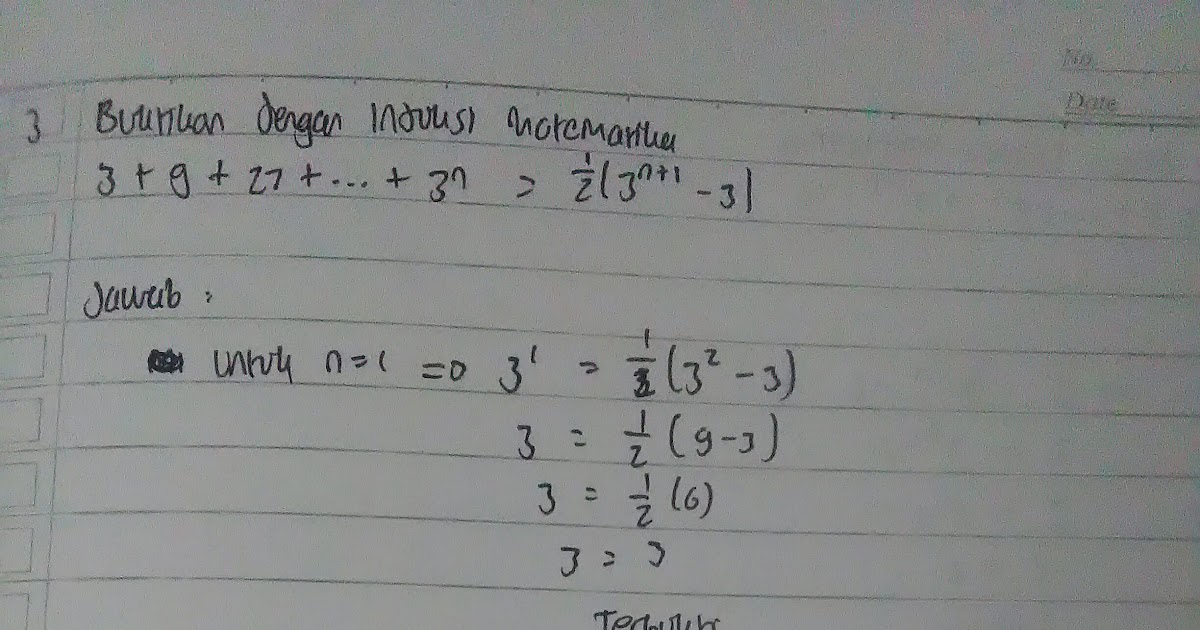 No.
Date
3 Buktikan dengan Induksi Matematika
3 + 9 + 27 + ... + 3ⁿ = 1/2(3ⁿ⁺¹ - 3)
Jawab :
untuk n=1 ⇒ 3¹ = 1/2(3² - 3)
3 = 1/2 (9-3)
3 = 1/2 (6)
3 = 3
Terbukti